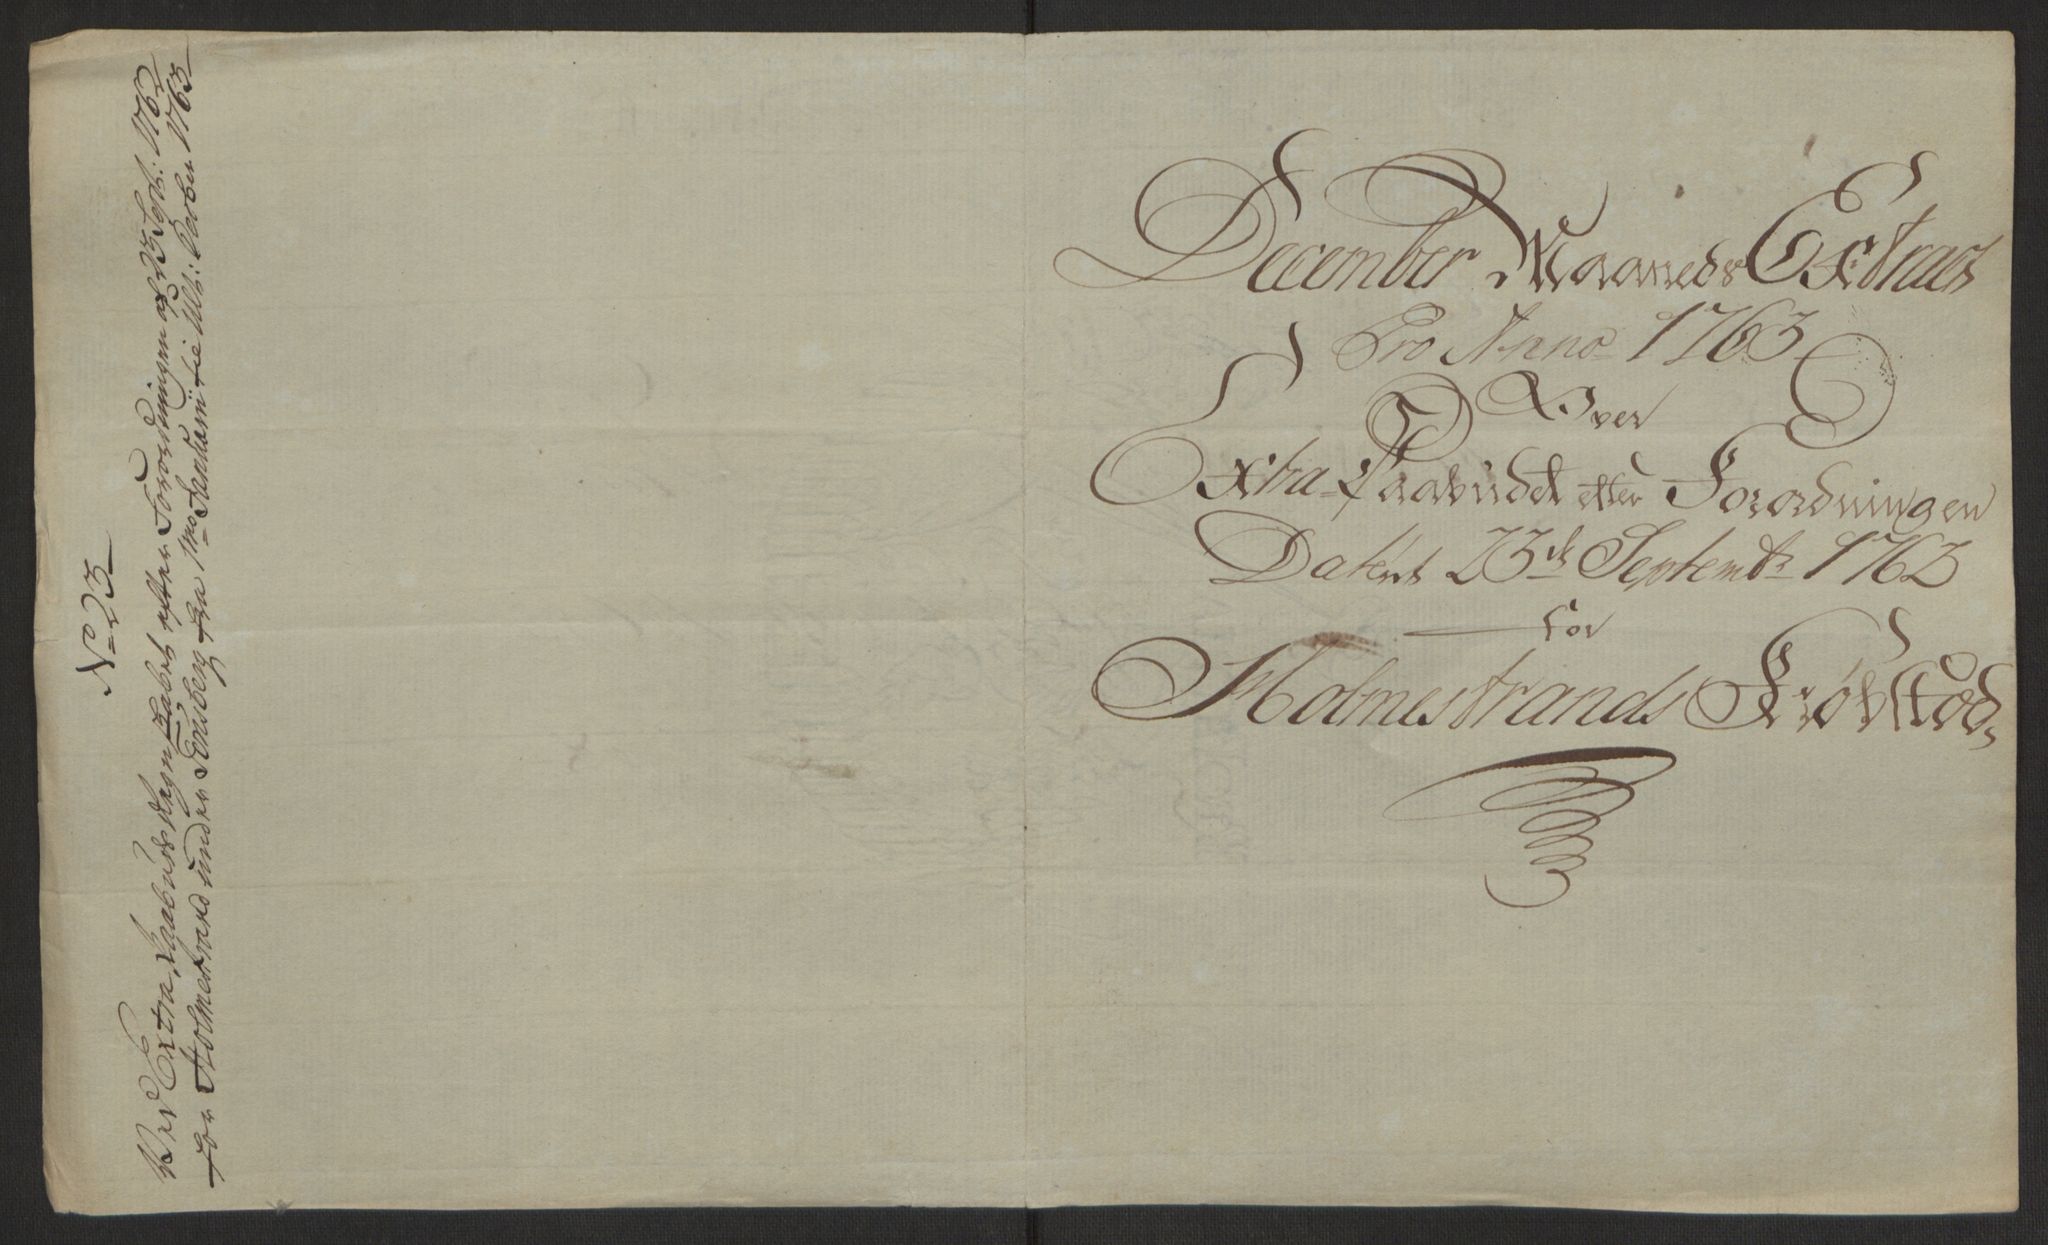 No 23
Ved Extra Paabuds Regnskabet efter Forordningen af 23 Sept: 1762
for Holmestrand under Tønsberg fra 1mo Januarii til Ult: Decber 1763
December Maaneds Extract
Pro Anno 1763
Over
Extra Paabudet efter Forordningen
Datert 23de Septembr 1762
for
Holmestrands Kiøbstæd